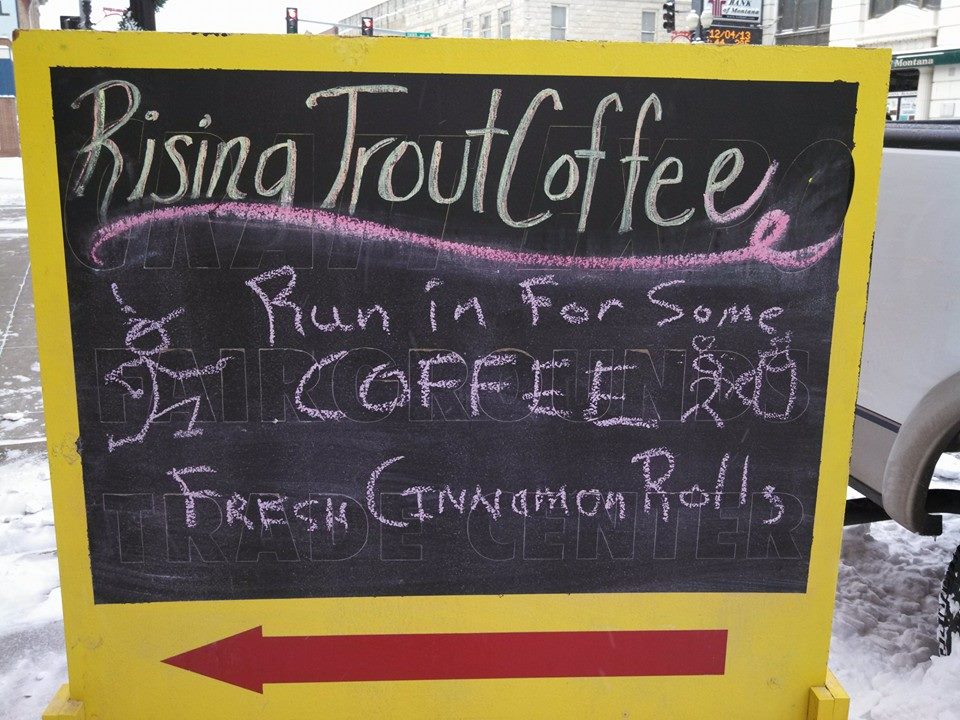 BANK
of Montana
12/04/13
Montana
Rising Trout Coffee
Run in For Some
COFFEE
FRESH CINNamon Rolls
FAIRGROUNDS
TRADE CENTER